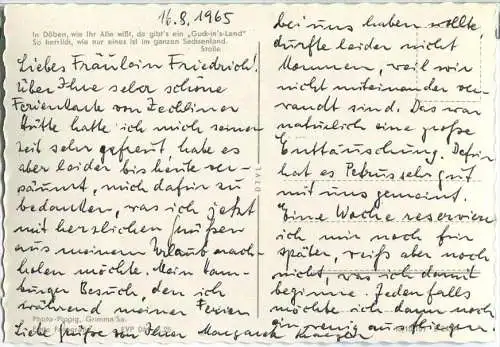 16.8.1965
In Döben, wie Ihr Alle wißt, da gibt's ein „Guck-in's-Land"
So herrlich, wie nur eines ist im ganzen Sachsenland.
Stolle
Liebes Fräulein Friedrich!
Über Ihre sehr schöne
Ferienkarte von Zechliner
Hütte hatte ich mich seiner
zeit sehr gefreut habe es
aber leider bis heute ver-
säumt, mich dafür zu
bedanken, was ich jetzt
mit herzlichen Grüßen
aus meinem Urlaub nach-
holen möchte. Mein Ham-
burger Besuch, den ich
während meiner Ferien
bei uns haben sollte,
durfte leider nicht
kommen, weil wir
nicht miteinander ver-
wandt sind. Das war
natürlich eine große
Enttäuschung. Dafür
hat es Petrus sehr gut
mit uns gemeint.
Eine Woche reserviere
ich mir noch für
später, weiß aber noch
nicht, was ich damit
beginne. Jedenfalls
möchte ich dann noch
ein wenig ausfliegen.
Photo-Pippig, Grimma/Sa.
Liebe Grüße von Ihrer Margarete